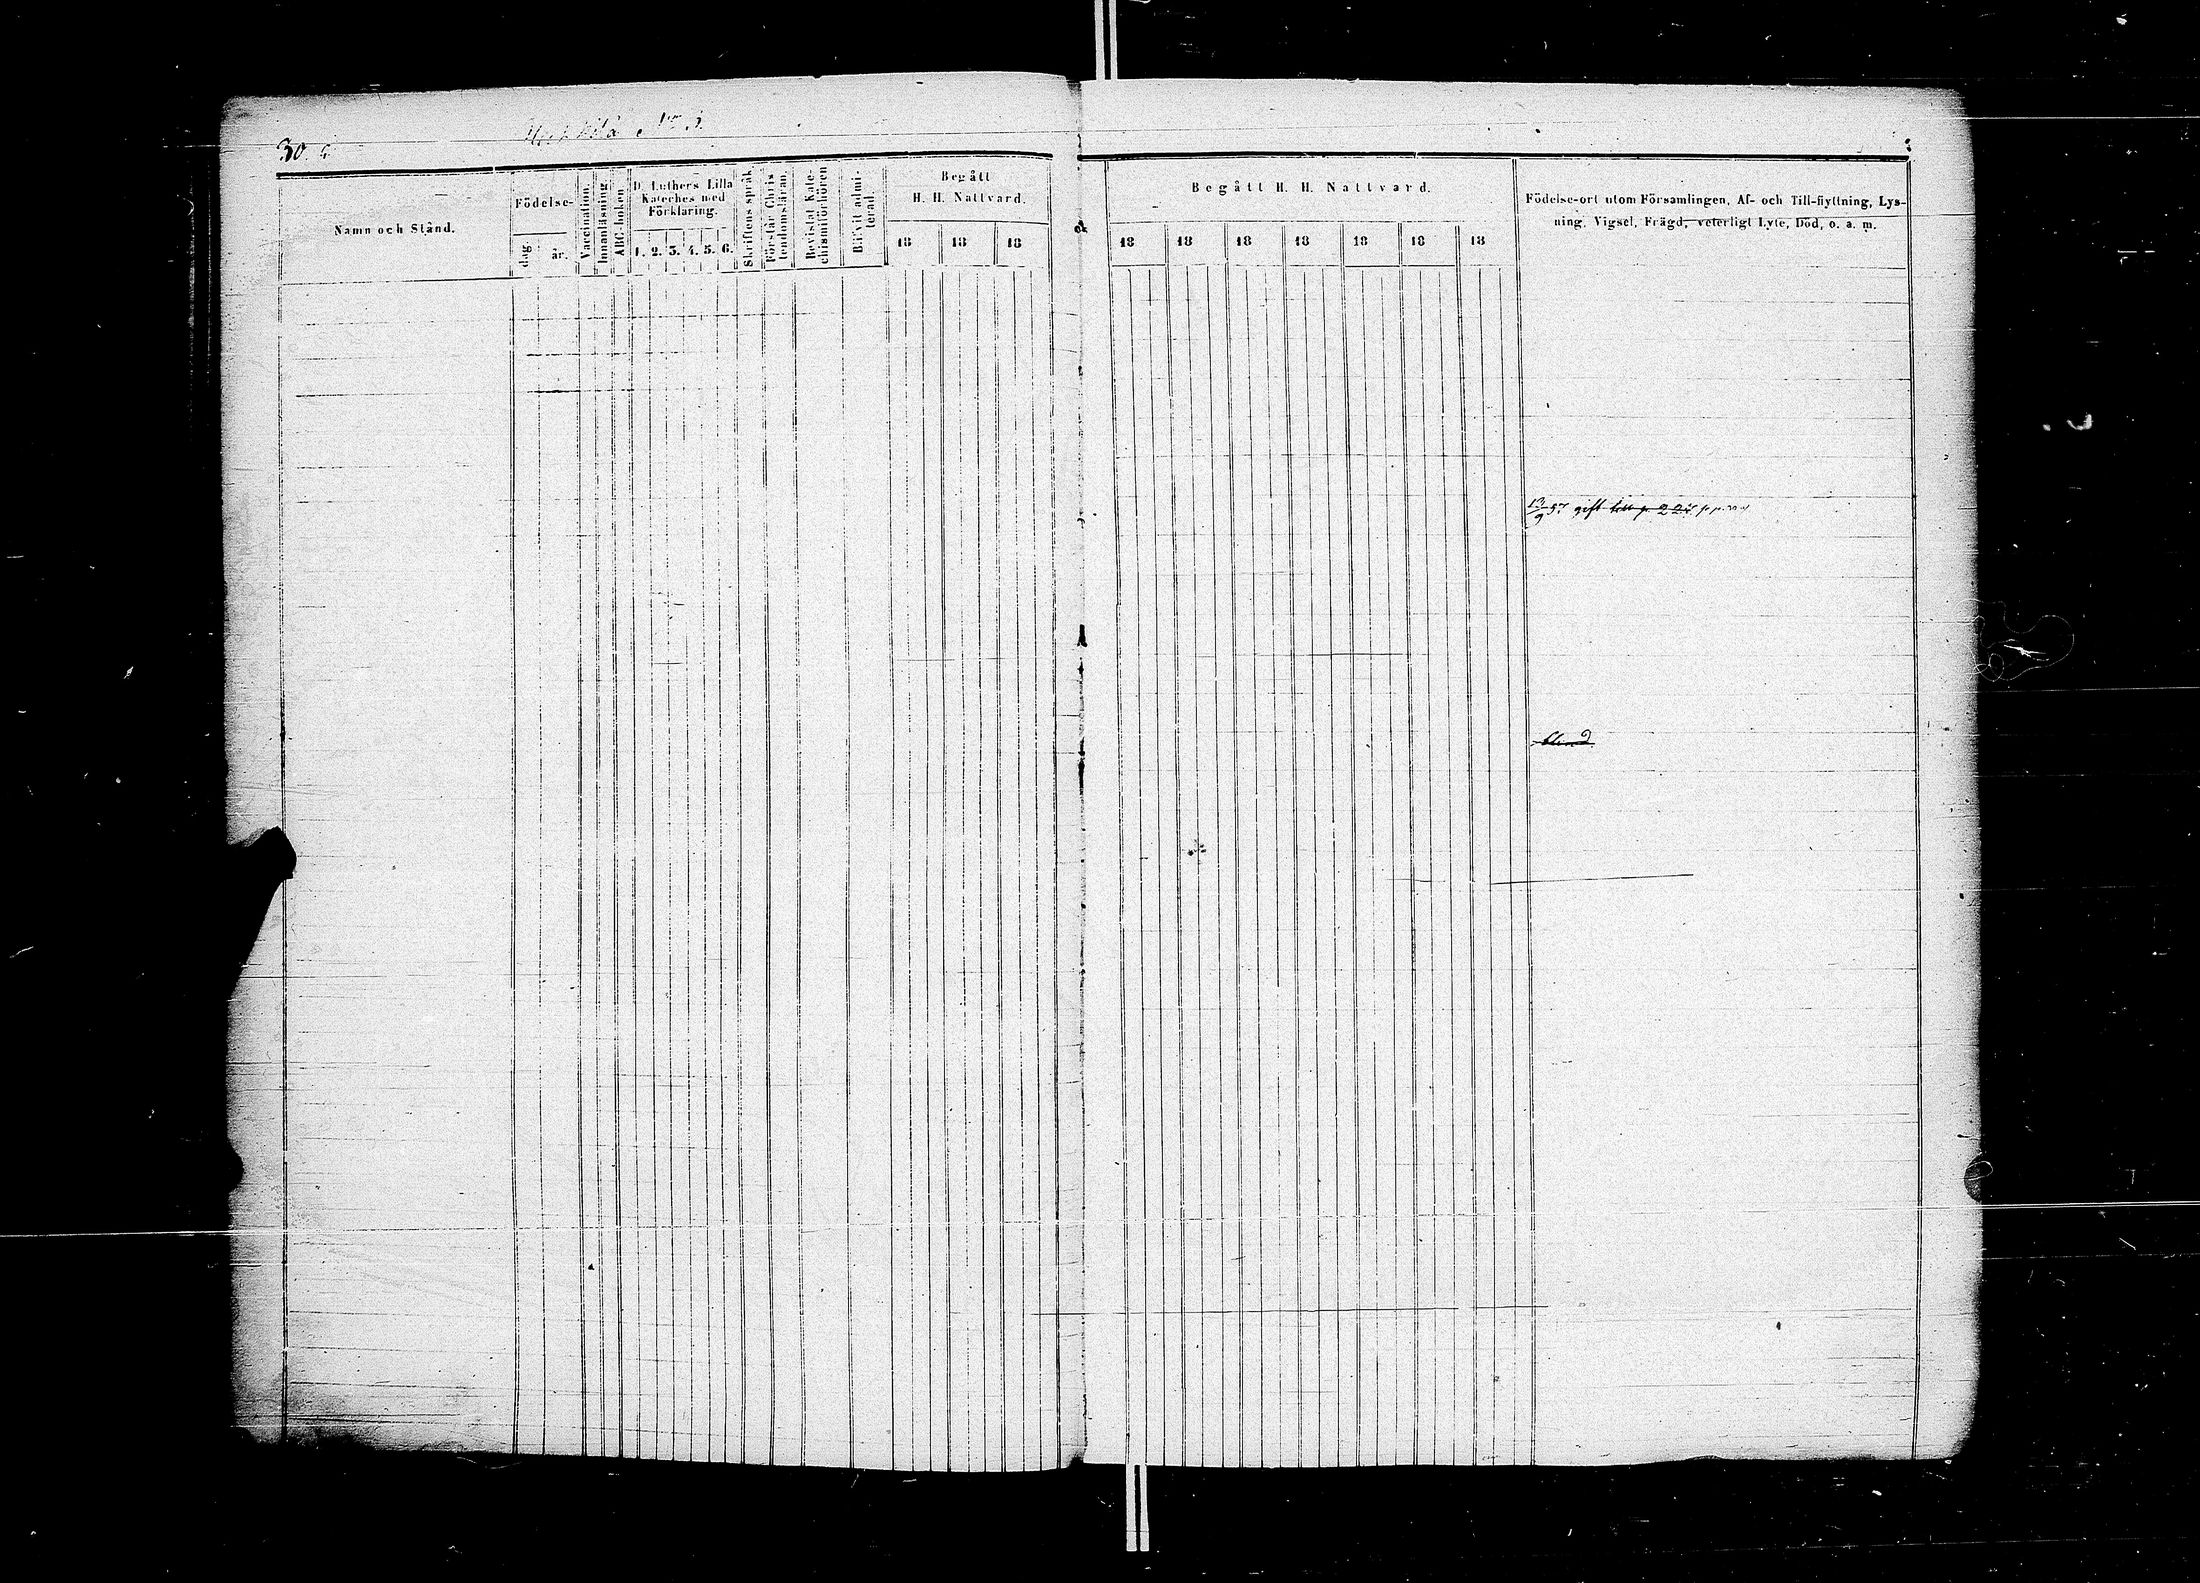 30.
N:o 3.
Namn och Stånd.
Födelse-
dag
år.
Vaccination.
Innanläsning
ABC-boken
D. Luthers Lilla
Kateches med
Förklaring.
1. 2. 3. 4. 5. 6.
Skriftens språk.
Förstår Chris
tendomsläran.
Bevistat Kate-
chismiförhören
Blifvit admi-
terad.
Begått
H. H. Nattvard.
18 18 18
Begått H. H. Nattvard.
18 18 18 18 18 18 18
Födelse-ort utom Församlingen, Af- och Till-flyttning, Lys-
ning, Vigsel, Frägd, veterligt Lyte, Död, o. a. m.
13/9 57 gift till p. 227
blind